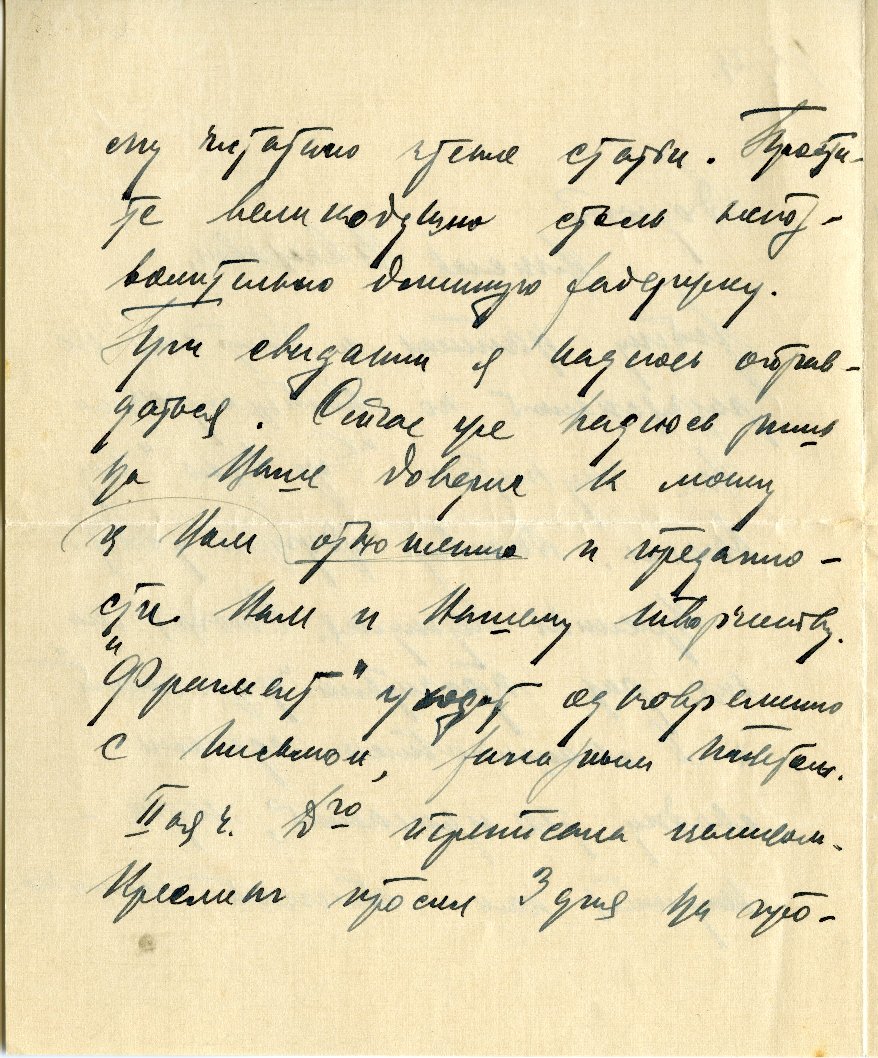 ему читатьно чтение статьи. Прости-
те великодушно столь непоз-
волительно длинную задержку.
При свидании я надеюсь оправ-
даться. Сейчас уже надеюсь лишь
на Ваше доверие к моему
к Вам отношению и преданно-
сти Вам и Вашему творчеству.
"Фрагмент" уходит одновременно
с письмом, заказным пакетом.
II ая ч. Д го переписана целиком.
Креслинг просил 3 дня на про-